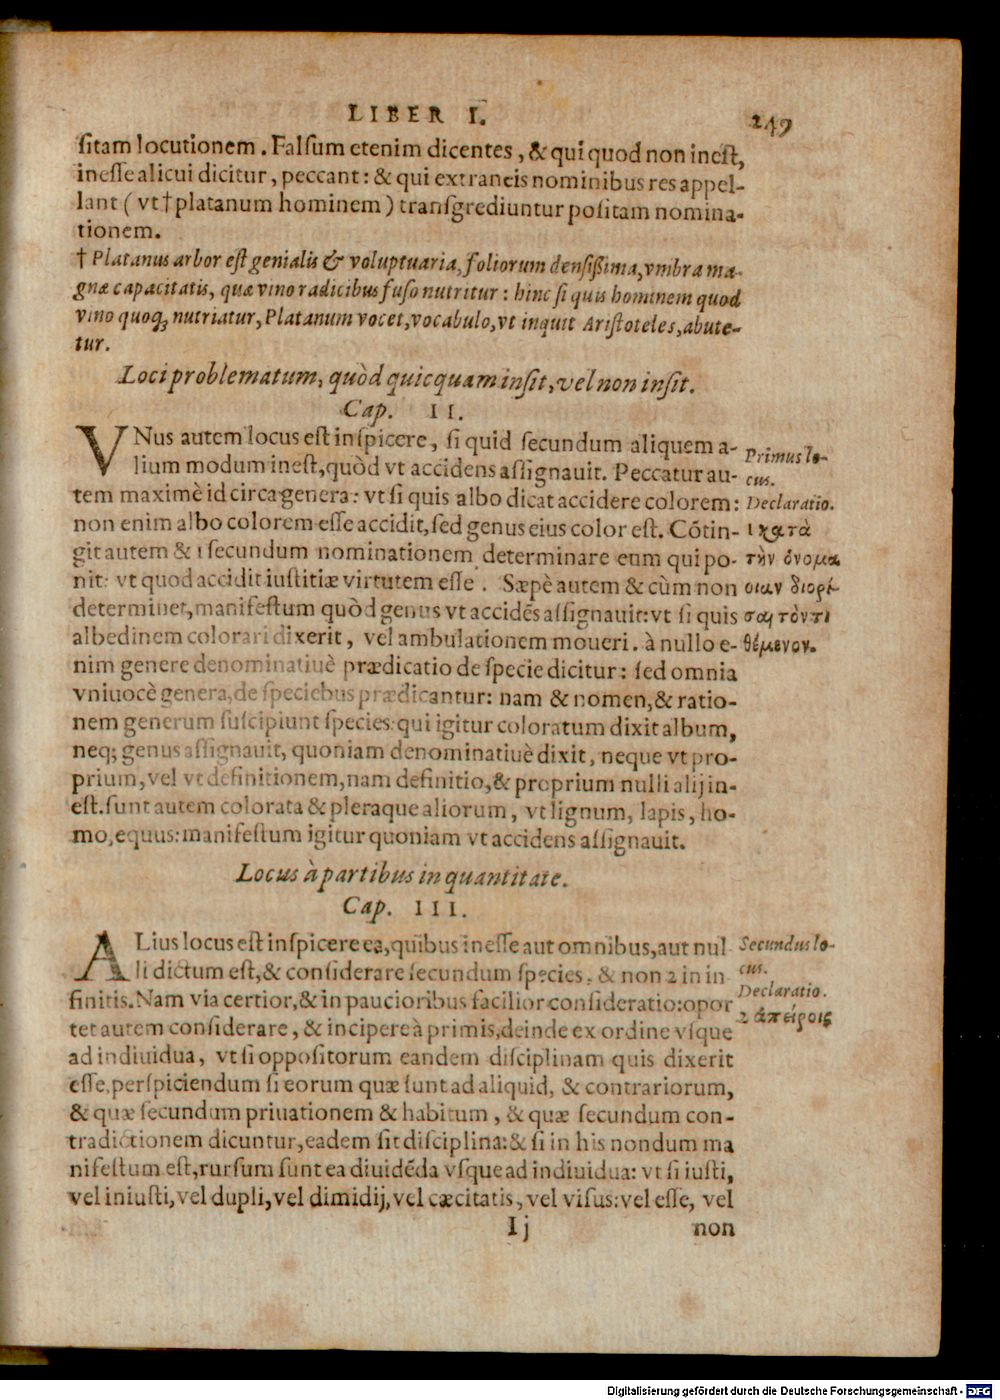 LIBER I.
249
sitam locutionem. Falsum etenim dicentes, & qui quod non inest,
inesse alicui dicitur, peccant: & qui extraneis nominibus res appel-
lant ( vt † platanum hominem ) transgrediuntur positam nomina-
tionem.
† Platanus arbor est genialis & voluptuaria, foliorum densißima, vmbra ma-
gnæ capacitatis, quæ vino radicibus fuso nutritur: hinc si quis hominem quod
vino quoq; nutriatur, Platanum vocet, vocabulo, vt inquit Aristoteles, abute-
tur.
Loci problematum, quòd quicquam insit, vel non insit.
Cap. II.
VNus autem locus est inspicere, si quid secundum aliquem a-
lium modum inest, quòd vt accidens assignauit. Peccatur au-
tem maximè id circa genera: vt si quis albo dicat accidere colorem:
non enim albo colorem esse accidit, sed genus eius color est. Cōtin-
git autem & 1 secundum nominationem determinare eum qui po-
nit: vt quod accidit iustitiæ virtutem esse. Sæpè autem & cùm non
determinet, manifestum quòd genus vt accidēs assignauit: vt si quis
albedinem colorari dixerit, vel ambulationem moueri. à nullo e-
nim genere denominatiuè prædicatio de specie dicitur: sed omnia
vniuocè genera, de speciebus prædicantur: nam & nomen, & ratio-
nem generum suscipiunt species: qui igitur coloratum dixit album,
neq; genus assignauit, quoniam denominatiuè dixit, neque vt pro-
prium, vel vt definitionem, nam definitio, & proprium nulli alij in-
est. sunt autem colorata & pleraque aliorum, vt lignum, lapis, ho-
mo, equus: manifestum igitur quoniam vt accidens assignauit.
Primus lo-
cus.
Declaratio.
1 κατὰ
τὴν ὀνομα
σιαν διορί-
σαι τὸν τι
θέμενον.
Locus à partibus in quantitate.
Cap. III.
ALius locus est inspicere ea, quibus inesse aut omnibus, aut nul
li dictum est, & considerare secundum species, & non 2 in in
finitis. Nam via certior, & in paucioribus facilior consideratio: opor
tet autem considerare, & incipere à primis, deinde ex ordine vsque
ad indiuidua, vt si oppositorum eandem disciplinam quis dixerit
esse, perspiciendum si eorum quæ sunt ad aliquid, & contrariorum,
& quæ secundum priuationem & habitum, & quæ secundum con-
tradictionem dicuntur, eadem sit disciplina: & si in his nondum ma
nifestum est, rursum sunt ea diuidēda vsque ad indiuidua: vt si iusti,
vel iniusti, vel dupli, vel dimidij, vel cæcitatis, vel visus: vel esse, vel
Secundus lo-
cus.
Declaratio.
2 ἀπείροις
Ij
non
Digitalisierung gefördert durch die Deutsche Forschungsgemeinschaft - DFG